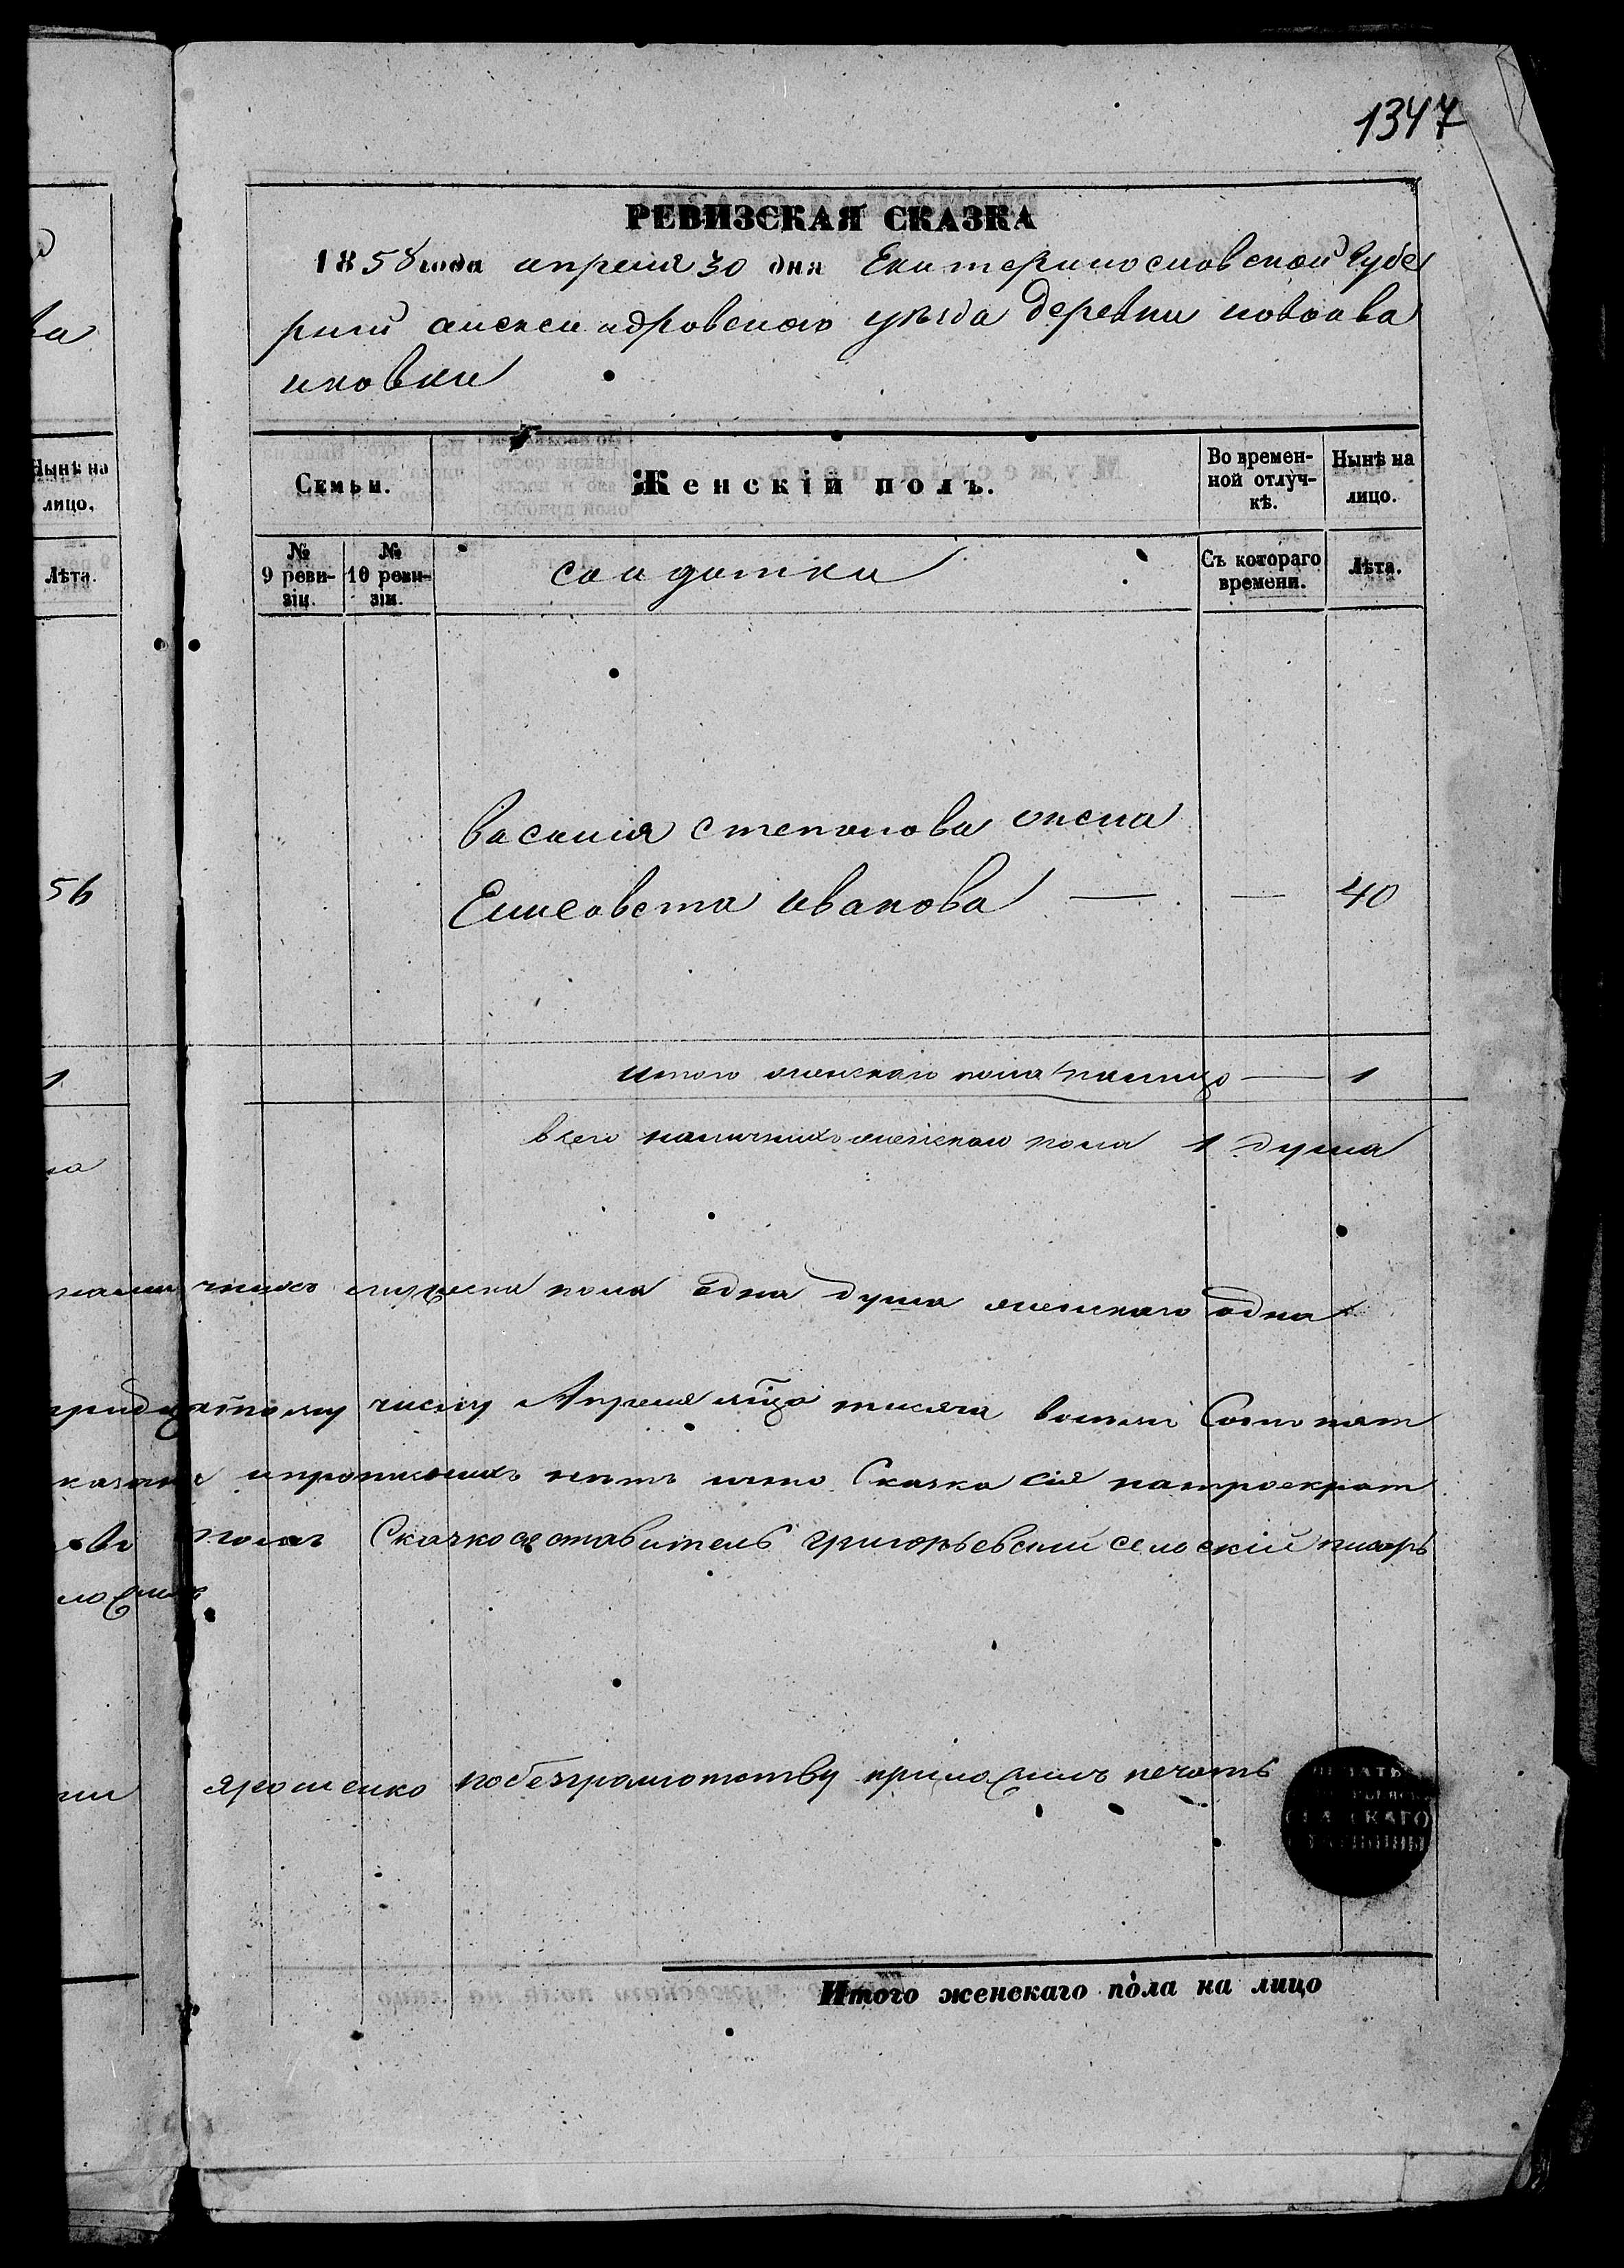 1347
РЕВИЗСКАЯ СКАЗКА
1858 года апреля 30 дня Екатеринославской Губе
рнии александровского уѣзда деревни новоива
новки
Нынѣ на лицо.
Семьи.
Женскій полъ.
Во времен-
ной отлуч-
кѣ.
Нынѣ на
лицо.
Лѣта.
№
9 реви-
зіи.
№
10 реви-
зіи.
солдатки
Съ котораго
времени.
Лѣта.
василия степанова жена
56
Елисавета иванова — — 40
1
итого женскаго пола налицо — 1
всего наличныхъ женскаго пола 1 душа
наличныхъ мужеска пола одна душа женскаго одна
тридцатому числу Апреля мца тисяча восем Сотъ пят
прописныхъ нѣтъ что Сказка сія натроекрат
Сказкосоставитель григорьевский селоский писарь
ложилъ
ярошенко по безграмотству приложилъ печать
ПЕЧАТЬ
СЕЛЬСКАГО
СТАРШИНЫ
Итого женскаго пола на лицо